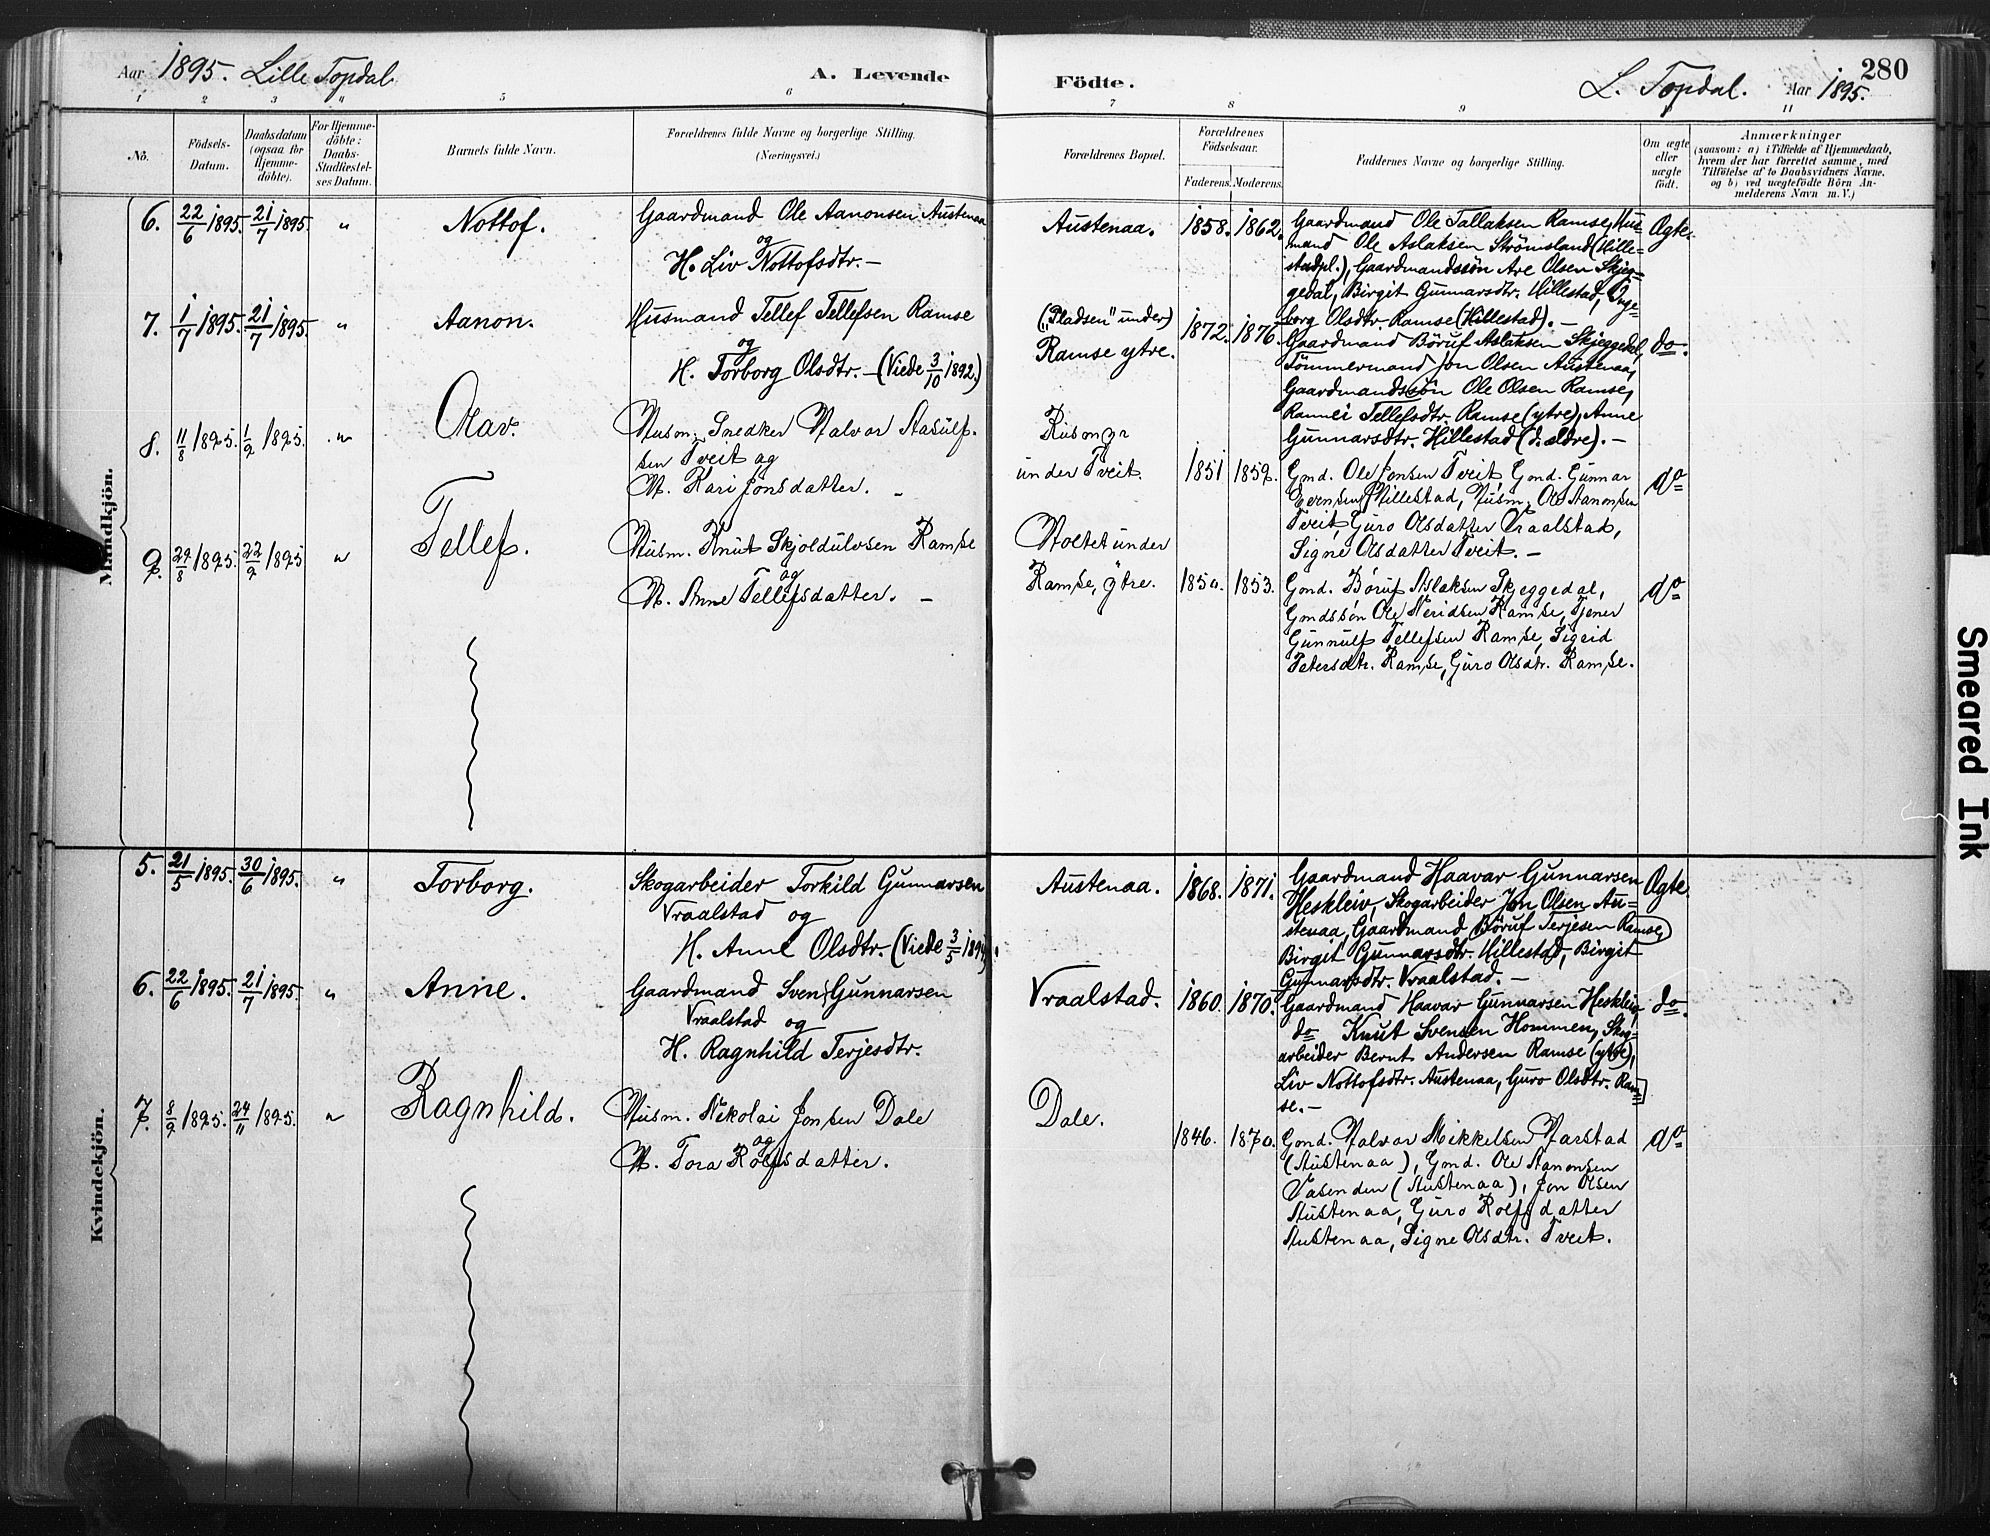 Aar 1895. Lille Topdal.
A. Levende
Födte.
L. Topdal. Aar 1895.
280
1 2 3 4 5 6 7 8 9 10 11
No.
Födsels-
Datum.
Daabsdatum
(ogsaa for
Hjemme-
döbte).
For Hjemme-
döbte:
Daabs-
Stadfæstel-
ses Datum.
Barnets fulde Navn.
Forældrenes fulde Navne og borgerlige Stilling.
(Næringsvei.)
Forældrenes Bopæl.
Forældrenes
Födselsaar.
Faderens. Moderens.
Faddernes Navne og borgerlige Stilling.
Om ægte
eller
uægte
födt.
Anmærkninger
(saasom: a) i Tilfælde af Hjemmedaab,
hvem der har forrettet samme, med
Tilföielse af to Daabsvidners Navne,
og b) ved uægtefödte Börn An-
melderens Navn m. V.)
Mandkjön.
6. 22/6 1895. 21/7 1895. " Nottof.
Gaardmand Ole Aanonsen Austenaa
og
H. Liv Nottofsdtr. –
Austenaa. 1858. 1862.
Gaardmand Ole Tallaksen Ramse, Hus-
mand Ole Aslaksen Strömsland (Hille-
stadpl.), Gaardmandssön Are Olsen Skjeg-
gedal, Birgit Gunnarsdtr. Hillestad, Inge-
borg Olsdtr. Ramse (Hillestad). –
Ægte.
7. 1/7 1895. 21/7 1895. " Aanon.
Husmand Tellef Tellefsen Ramse
og
H. Torborg Olsdtr. – (Viede 3/10 1892.)
("Pladsen" under)
Ramse ytre.
1872. 1876.
Gaardmand Böruf Aslaksen Skjeggedal,
Tömmermand Jon Olsen Austenaa,
Gaardmandssön Ole Olsen Ramse,
Rannei Tellefsdtr. Ramse (ytre), Anne
Gunnarsdtr. Hillestad (d. eldre). –
do.
8. 11/8 1895. 1/9 1895. " Olav.
Husm. Snedker Halvor Aasulf-
sen Tveit og
H. Kari Jonsdatter. –
under Tveit. 1851 1859.
Gmd. Ole Jonsen Tveit, Gmd. Gunnar
Evensen Hillestad, Husm. Ole Aanonsen
Tveit, Guro Olsdatter Vraalstad,
Signe Olsdatter Tveit. –
do
9. 29/8 1895. 22/9 1895 " Tellef.
Husm. Knut Skjoldulvsen Ramse
og
H. Anne Tellefsdatter. –
Holtet under
Ramse, ytre. 1850. 1853.
Gmd. Böruf Aslaksen Skjeggedal,
Gmdssön Ole Neridsen Ramse, Tjener
Gunnulf Tellefsen Ramse, Sigrid
Petersdtr. Ramse, Guro Olsdtr. Ramse.
do
Kvindekjön.
5. 21/5 1895. 30/6 1895. " Torborg.
Skogarbeider Torkild Gunnarsen
Vraalstad og
H. Anne Olsdtr. (Viede 3/5 1894).
Austenaa. 1868. 1871.
Gaardmand Haavar Gunnarsen
Heskleiv, Skogarbeider Jon Olsen Au-
stenaa, Gaardmand Böruf Terjesen Ramse,
Birgit Gunnarsdtr. Hillestad, Birgit
Gunnarsdtr. Vraalstad. –
Ægte.
6. 22/6 1895. 21/7 1895. " Anne.
Gaardmand Sven Gunnarsen
Vraalstad og
H. Ragnhild Terjesdtr.
Vraalstad. 1860. 1870.
Gaardmand Haavar Gunnarsen Heskleiv,
do Knut Svensen Hommen, Skog-
arbeider Bernt Andersen Ramse (ytre),
Liv Nottofsdtr. Austenaa, Guro Olsdtr. Ram-
se. –
do.
7. 8/9 1895. 24/11 1895. " Ragnhild.
Husm. Nikolai Jonsen Dale
og
H. Tora Rolfsdatter.
Dale. 1846. 1870.
Gmd. Halvor Mikkelsen Harstad
(Austenaa), Gmd. Ole Aanonsen
Vasenden (Austenaa), Jon Olsen
Austenaa, Guro Rolfsdatter
Austenaa, Signe Olsdtr. Tveit.
do
Smeared Ink